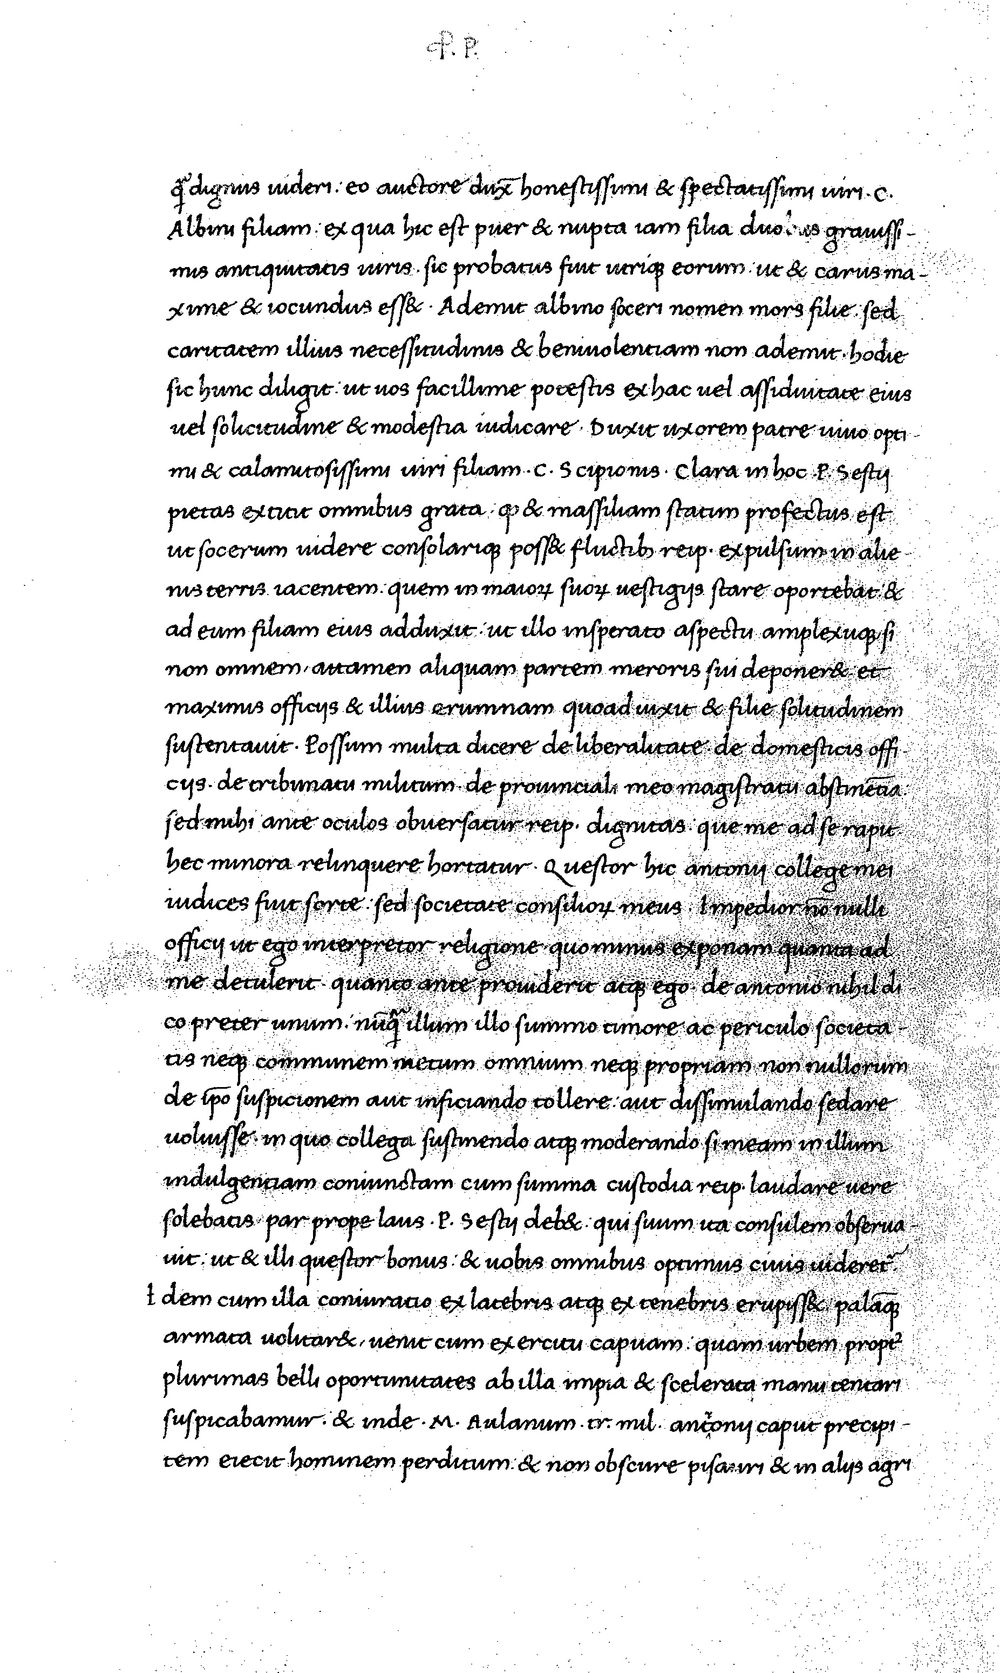 .P. P.
q̃ dignus uideri: eo auctore dux̄ honestissimi & spectatissimi uiri. C.
Albini filiam: ex qua hic est puer & nupta iam filia duobus grauissi-
mis antiquitatis uiris. sic probatus fuit utriqꝫ eorum: ut & carus ma-
xime & iocundus ess&. Ademit albino soceri nomen mors filie. sed
caritatem illius necessitudinis & beniuolentiam non ademit. hodie
sic hunc diligit: ut uos facillime potestis ex hac uel assiduitate eius
uel solicitudine & modestia iudicare. Duxit uxorem patre uiuo opti-
mi & calamitosissimi uiri filiam. C. Scipionis. Clara in hoc P. Sestij
pietas extitit omnibus grata. ꝙ & massiliam statim profectus est
ut socerum uidere consolariqꝫ poss& fluctibꝫ reip. expulsum in alie-
nis terris iacentem: quem in maioꝝ suoꝝ uestigijs stare oportebat: &
ad eum filiam eius adduxit: ut illo insperato aspectu amplexuqꝫ si
non omnem, attamen aliquam partem meroris sui deponer& et
maximis officijs & illius erumnam quoad uixit & filie solitudinem
sustentauit. Possum multa dicere de liberalitate. de domesticis offi
cijs. de tribunatu militum. de prouinciali meo magistratu abstinētia
sed mihi ante oculos obuersatur reip. dignitas. que me ad se rapit
hec minora relinquere hortatur. Questor hic antonij college mei
iudices fuit sorte. sed societate consilioꝝ meus. Impedior nō nulli
officij ut ego interpretor religione quominus exponam quanta ad
me detulerit. quanto ante prouiderit atqꝫ ego. de antonio nihil di
co preter unum. nūq̃ illum illo summo timore ac periculo societa-
tis neqꝫ communem metum omnium neqꝫ propriam non nullorum
de ip̄o suspicionem aut inficiando tollere: aut dissimulando sedare
uoluisse. in quo collega sustinendo atqꝫ moderando si meam in illum
indulgentiam coniunctam cum summa custodia reip. laudare uere
solebatis. par prope laus. P. Sestij deb&. qui suum ita consulem obserua-
uit: ut & illi questor bonus: & uobis omnibus optimus ciuis uideret̃.
I dem cum illa coniuratio ex latebris atqꝫ ex tenebris erupiss&, palāqꝫ
armata uolitar&, uenit cum exercitu capuam: quam urbem propt̃
plurimas belli oportunitates ab illa impia & scelerata manu tentari
suspicabamur. & inde. M. Aulanum. tr. mil. antonij caput precipi-
tem eiecit hominem perditum: & non obscure pisauri & in alijs agri